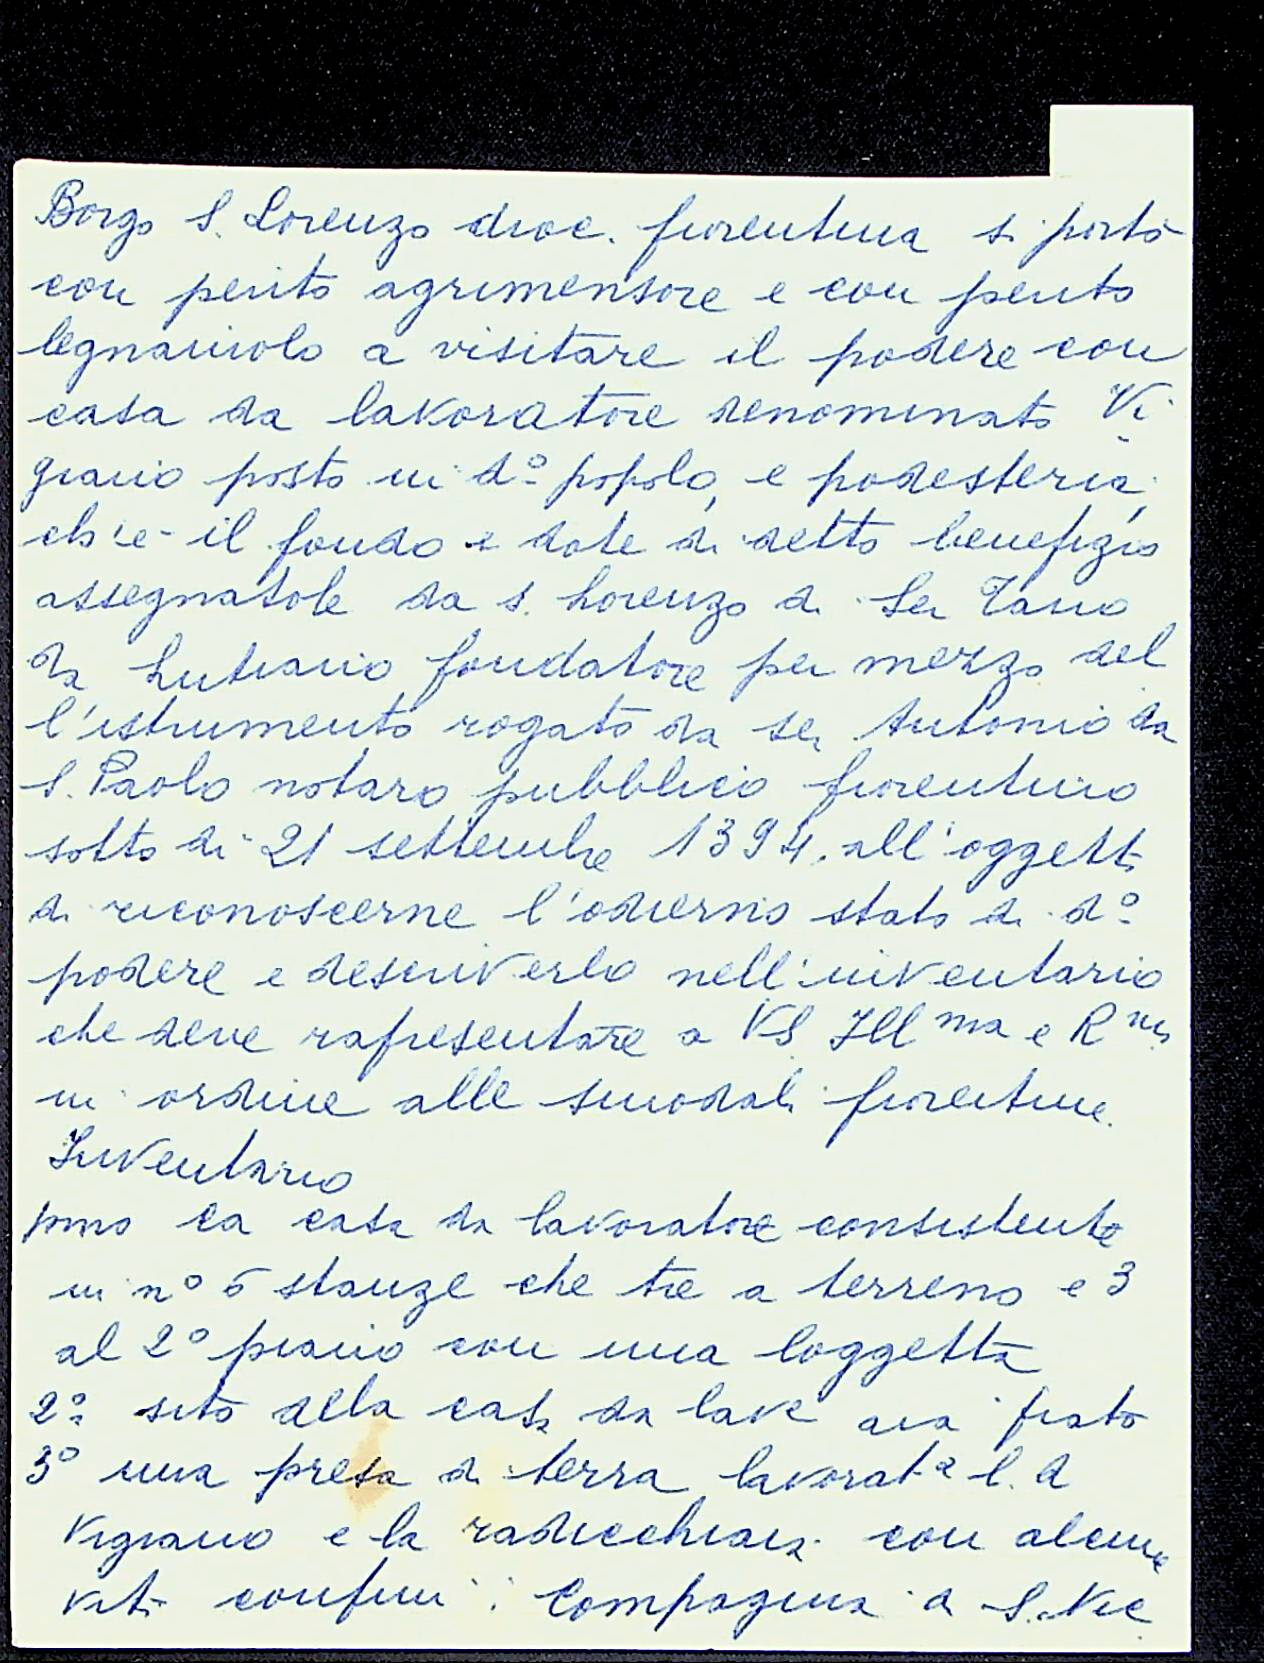 Borgo S. Lorenzo dioc. fiorentina si portò
con perito agrimensore e con perito
legnaiuolo a visitare il podere con
casa da lavoratore denominato Vi
giano posto in d.º popolo, e podesteria,
ch'è il fondo e dote di detto benefizio
assegnatole da s. Lorenzo di Ser Tano
da Lutiano fondatore per mezzo del
l'istrumento rogato da ser Antonio da
S. Paolo notaro pubblico fiorentino
sotto dì 21 settembre 1394, all'oggetto
di riconoscerne l'odierno stato di d.º
podere e descriverlo nell'inventario
che deve rapresentare a VS Ill ma e R ma
in ordine alle sinodali fiorentine.
Inventario
pmo la casa da lavoratore consistente
in nº 6 stanze che tre a terreno e 3
al 2º piano con una loggetta
2º sito della casa da lav.e aia prato
3º una presa di terra lavorat.a l. d
Vigiano e la radicchiaia con alcune
viti confini : Compagnia di S. Nic